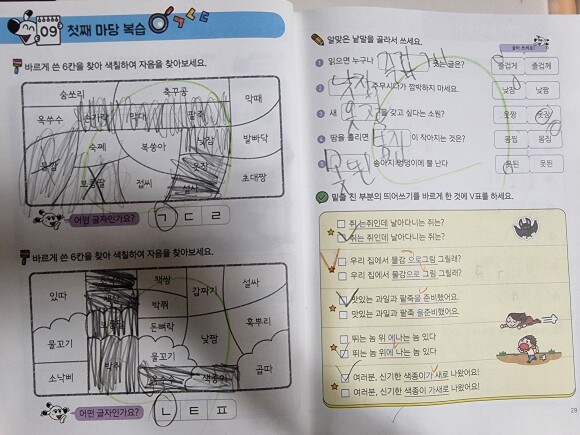 09 첫째 마당 복습
바르게 쓴 6칸을 찾아 색칠하여 자음을 찾아보세요.
숨쏘리
축꾸공
막때
옥쑤수
손가락
막대
팥죽
낮잠
발빠닥
숙쩨
복쑹아
옷장
물깜
보름딸
접씨
초대짱
어떤 글자인가요? ㄱ ㄷ ㄹ
바르게 쓴 6칸을 찾아 색칠하여 자음을 찾아보세요.
있따
책쌍
갑짜지
설싸
박쮜
돈뼈락
낯짬
혹뿌리
물꼬기
물고기
박쥐
곱따
소낙삐
색종이
어떤 글자인가요? ㄴ ㅌ ㅍ
알맞은 낱말을 골라서 쓰세요.
1 읽으면 누구나 는 글은? 즐겁게 즐겁께
2 낮잠 주무시다가 깜짝하지 마세요. 낮잠 낮짬
3 새 옷장 을 갖고 싶다는 소원? 옷짱 옷장
4 땀을 흘리면 몸집 이 작아지는 것은? 몸찝 몸집
5 못된 송아지 엉덩이에 뿔 난다 못된 못뙨
밑줄 친 부분의 띄어쓰기를 바르게 한 것에 V표를 하세요.
쥐는쥐인데 날아다니는 쥐는?
쥐는 쥐인데 날아다니는 쥐는?
우리 집에서 물감 으로그림 그릴래?
우리 집에서 물감으로 그림 그릴래?
맛있는 과일과 팥죽을 준비했어요.
맛있는 과일과 팥죽 을준비했어요.
뛰는 놈 위 에나는 놈 있다
뛰는 놈 위에 나는 놈 있다
여러분, 신기한 색종이가 새로 나왔어요!
여러분, 신기한 색종이 가새로 나왔어요!
29